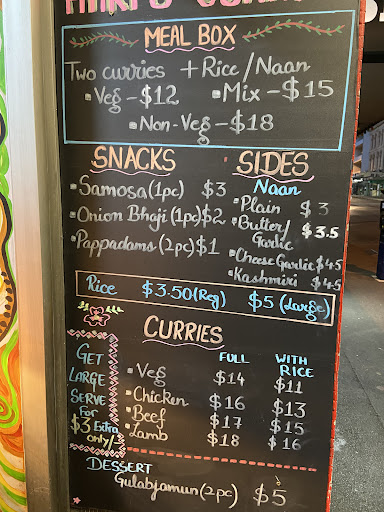 MEAL BOX
Two curries + Rice/Naan
Veg - $12 Mix - $15
Non-Veg - $18
SNACKS
Samosa (1pc) $3
Onion Bhaji (1pc) $2
Pappadams (2pc) $1
SIDES
Naan
Plain $3
Butter/ Garlic $3.5
Cheese Garlic $4.5
Kashmiri $4.5
Rice $3.50 (Reg) $5 (Large)
CURRIES
FULL WITH RICE
Veg $14 $11
Chicken $16 $13
Beef $17 $15
Lamb $18 $16
GET
LARGE
SERVE
For
$3 Extra
only/-
DESSERT
Gulabjamun (2pc) $5